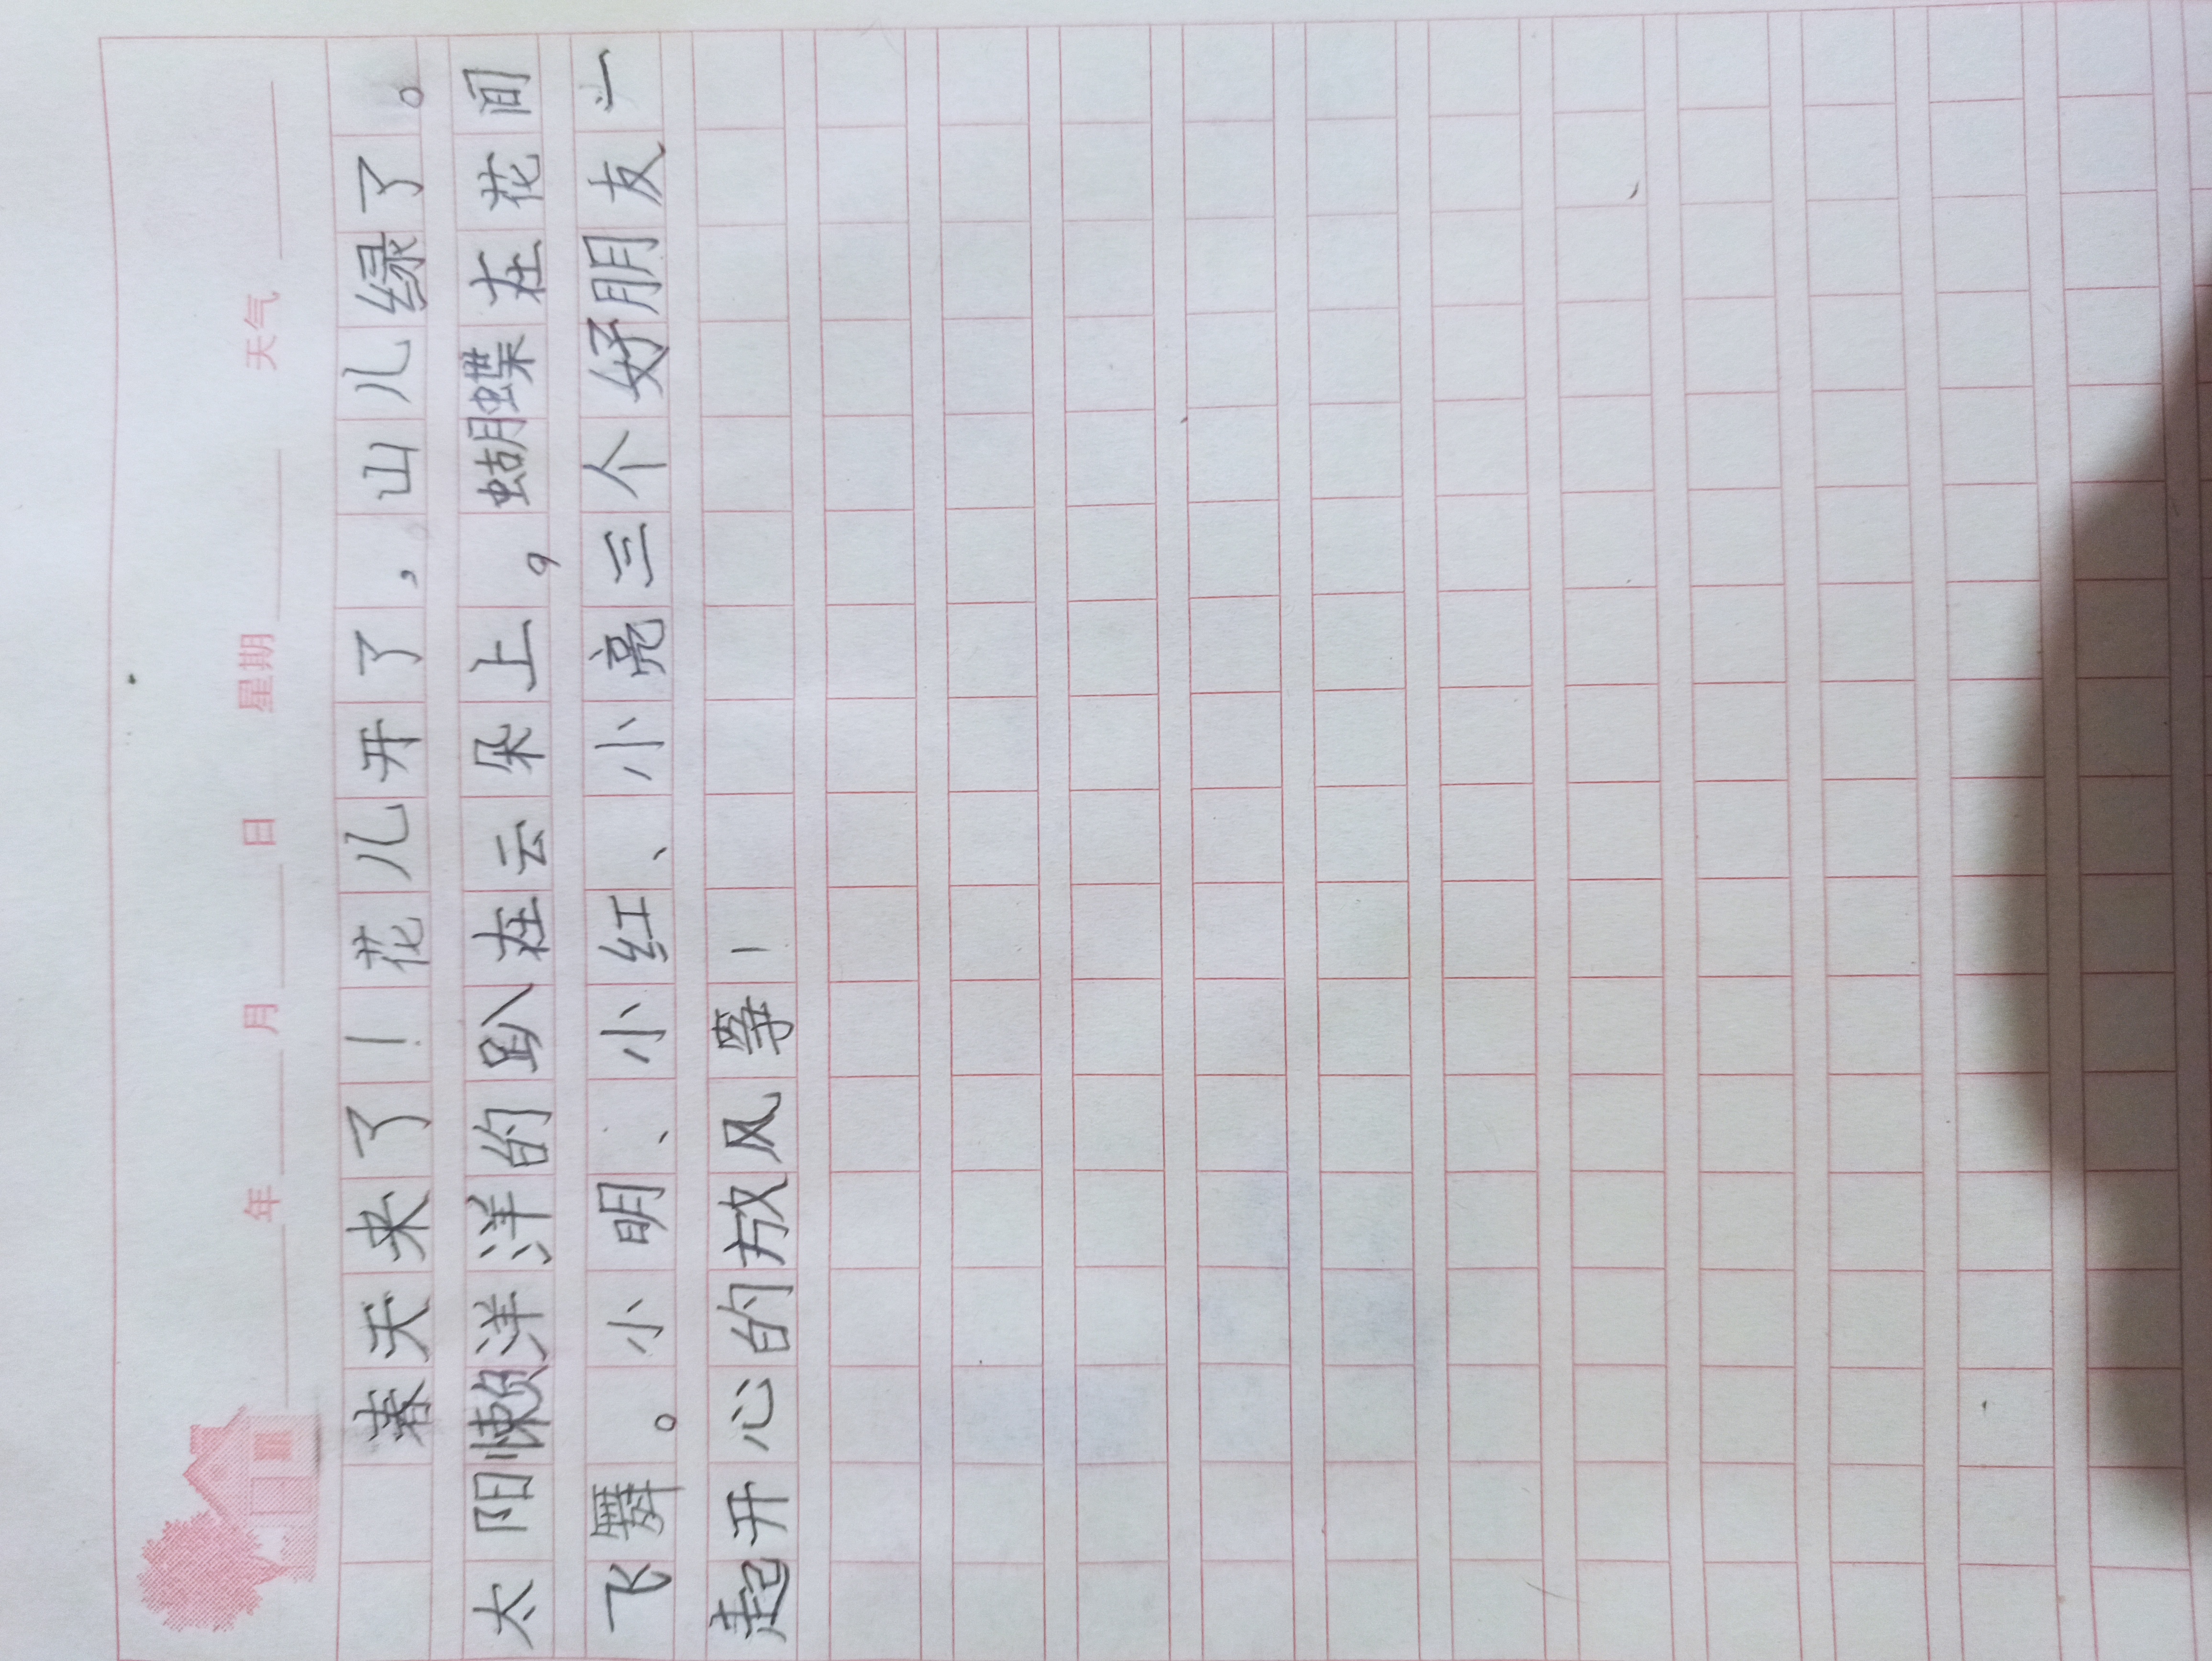 年 月 日 星期 天气
春天来了！花儿开了，山儿绿了。
太阳懒洋洋的趴在云朵上，蝴蝶在花间
飞舞。小明、小红、小亮三个好朋友一
起开心的放风筝！